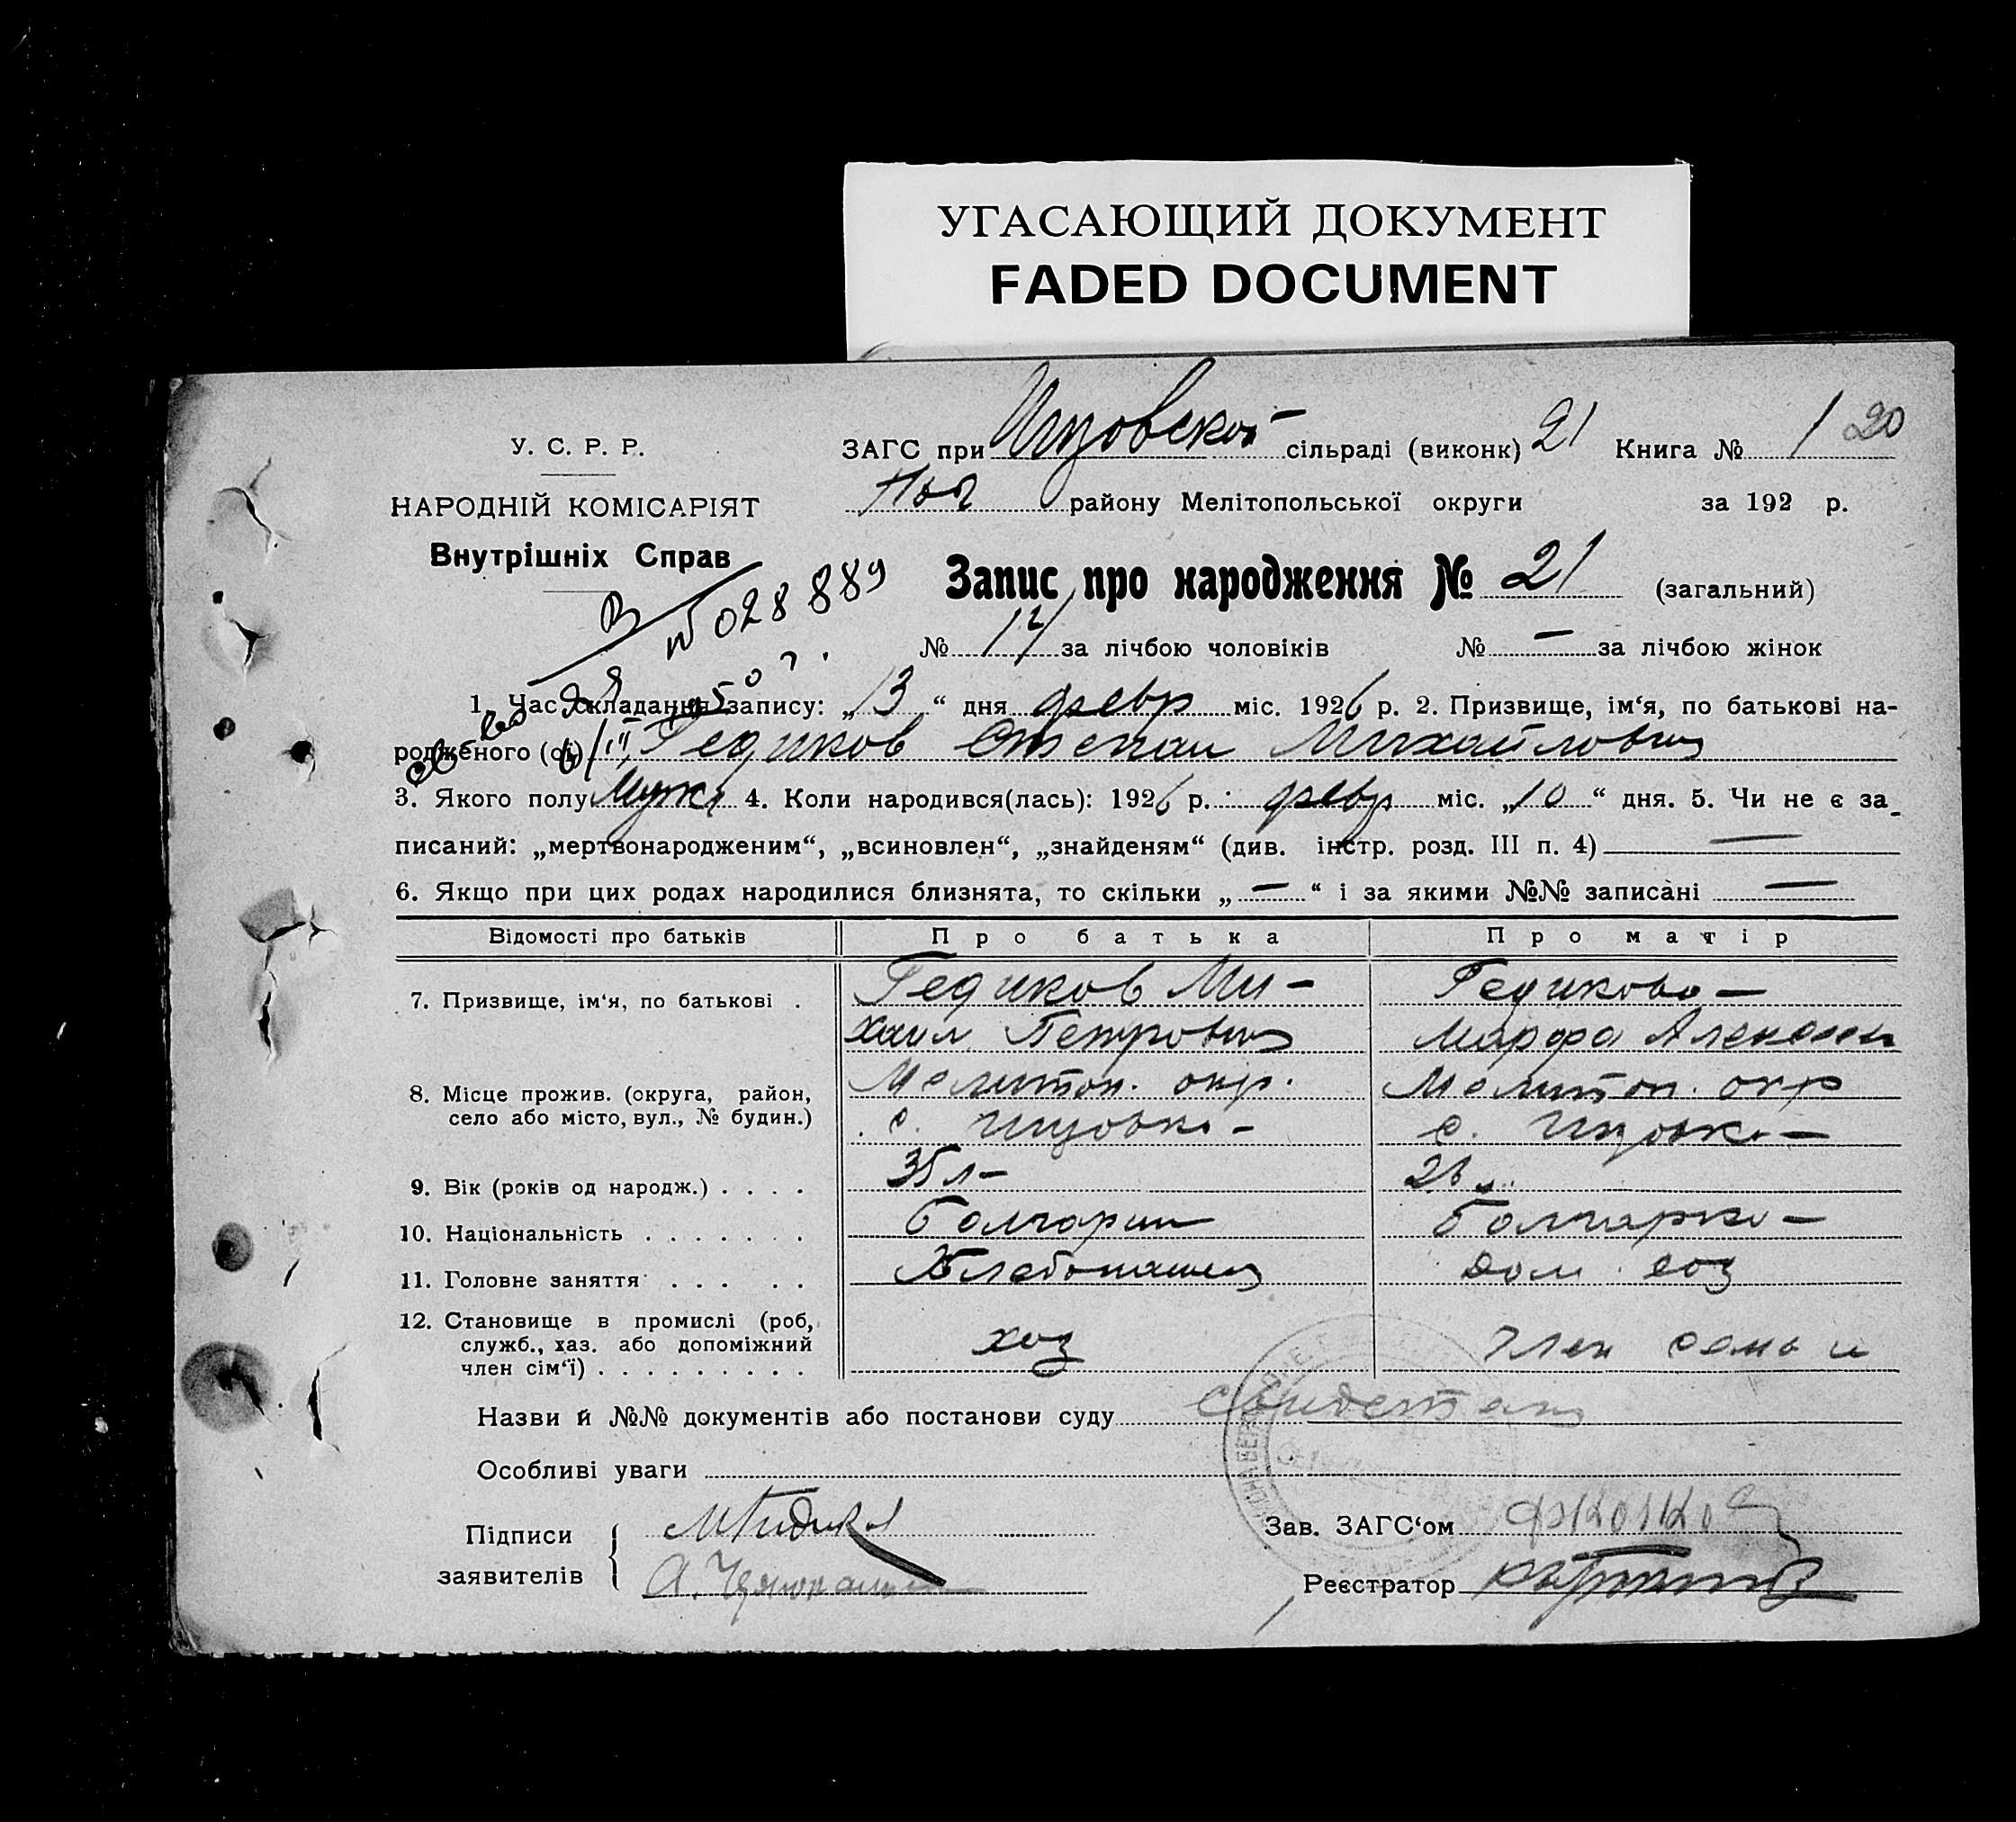 УГАСАЮЩИЙ ДОКУМЕНТ
FADED DOCUMENT
У. С. Р. Р.
НАРОДНІЙ КОМІСАРІЯТ
Внутрішніх Справ
ЗАГС при сільраді (виконк) 21 Книга № 1 20
району Мелітопольської округи за 192 р.
№ 028889
Запис про народження № 21 (загальний)
№ за лічбою чоловіків № — за лічбою жінок
1. Час складання запису: „13“ дня февр міс. 1926 р. 2. Призвище, ім‘я, по батькові на-
родженого (ої) Гедиков Степан Михайлович
3. Якого полу Муж 4. Коли народився(лась): 1926 р. февр міс. „10“ дня. 5. Чи не є за-
писаний: „мертвонародженим“, „всиновлен“, „знайденям“ (див. інстр. розд. III п. 4) —
6. Якщо при цих родах народилися близнята, то скільки „—“ і за якими №№ записані —
Відомості про батьків Про батька Про матір
7. Призвище, ім‘я, по батькові . Гедиков Ми- Гедикова —
хаил Петрович Марфа
8. Місце прожив. (округа, район, Мелитоп. окр. Мелитоп. окр
село або місто, вул., № будин.) с. с.
9. Вік (років од народж.) . . . . 35 л–
10. Національність . . . . . . . Болгарин Болгарка —
11. Головне заняття . . . . . Хлебопашец дом. хоз
12. Становище в промислі (роб,
служб., хаз. або допоміжний хоз член семьи
член сім‘ї) . . . . . . . . .
Назви й №№ документів або постанови суду
Особливі уваги
Підписи Зав. ЗАГС‘ом
заявителів Реєстратор